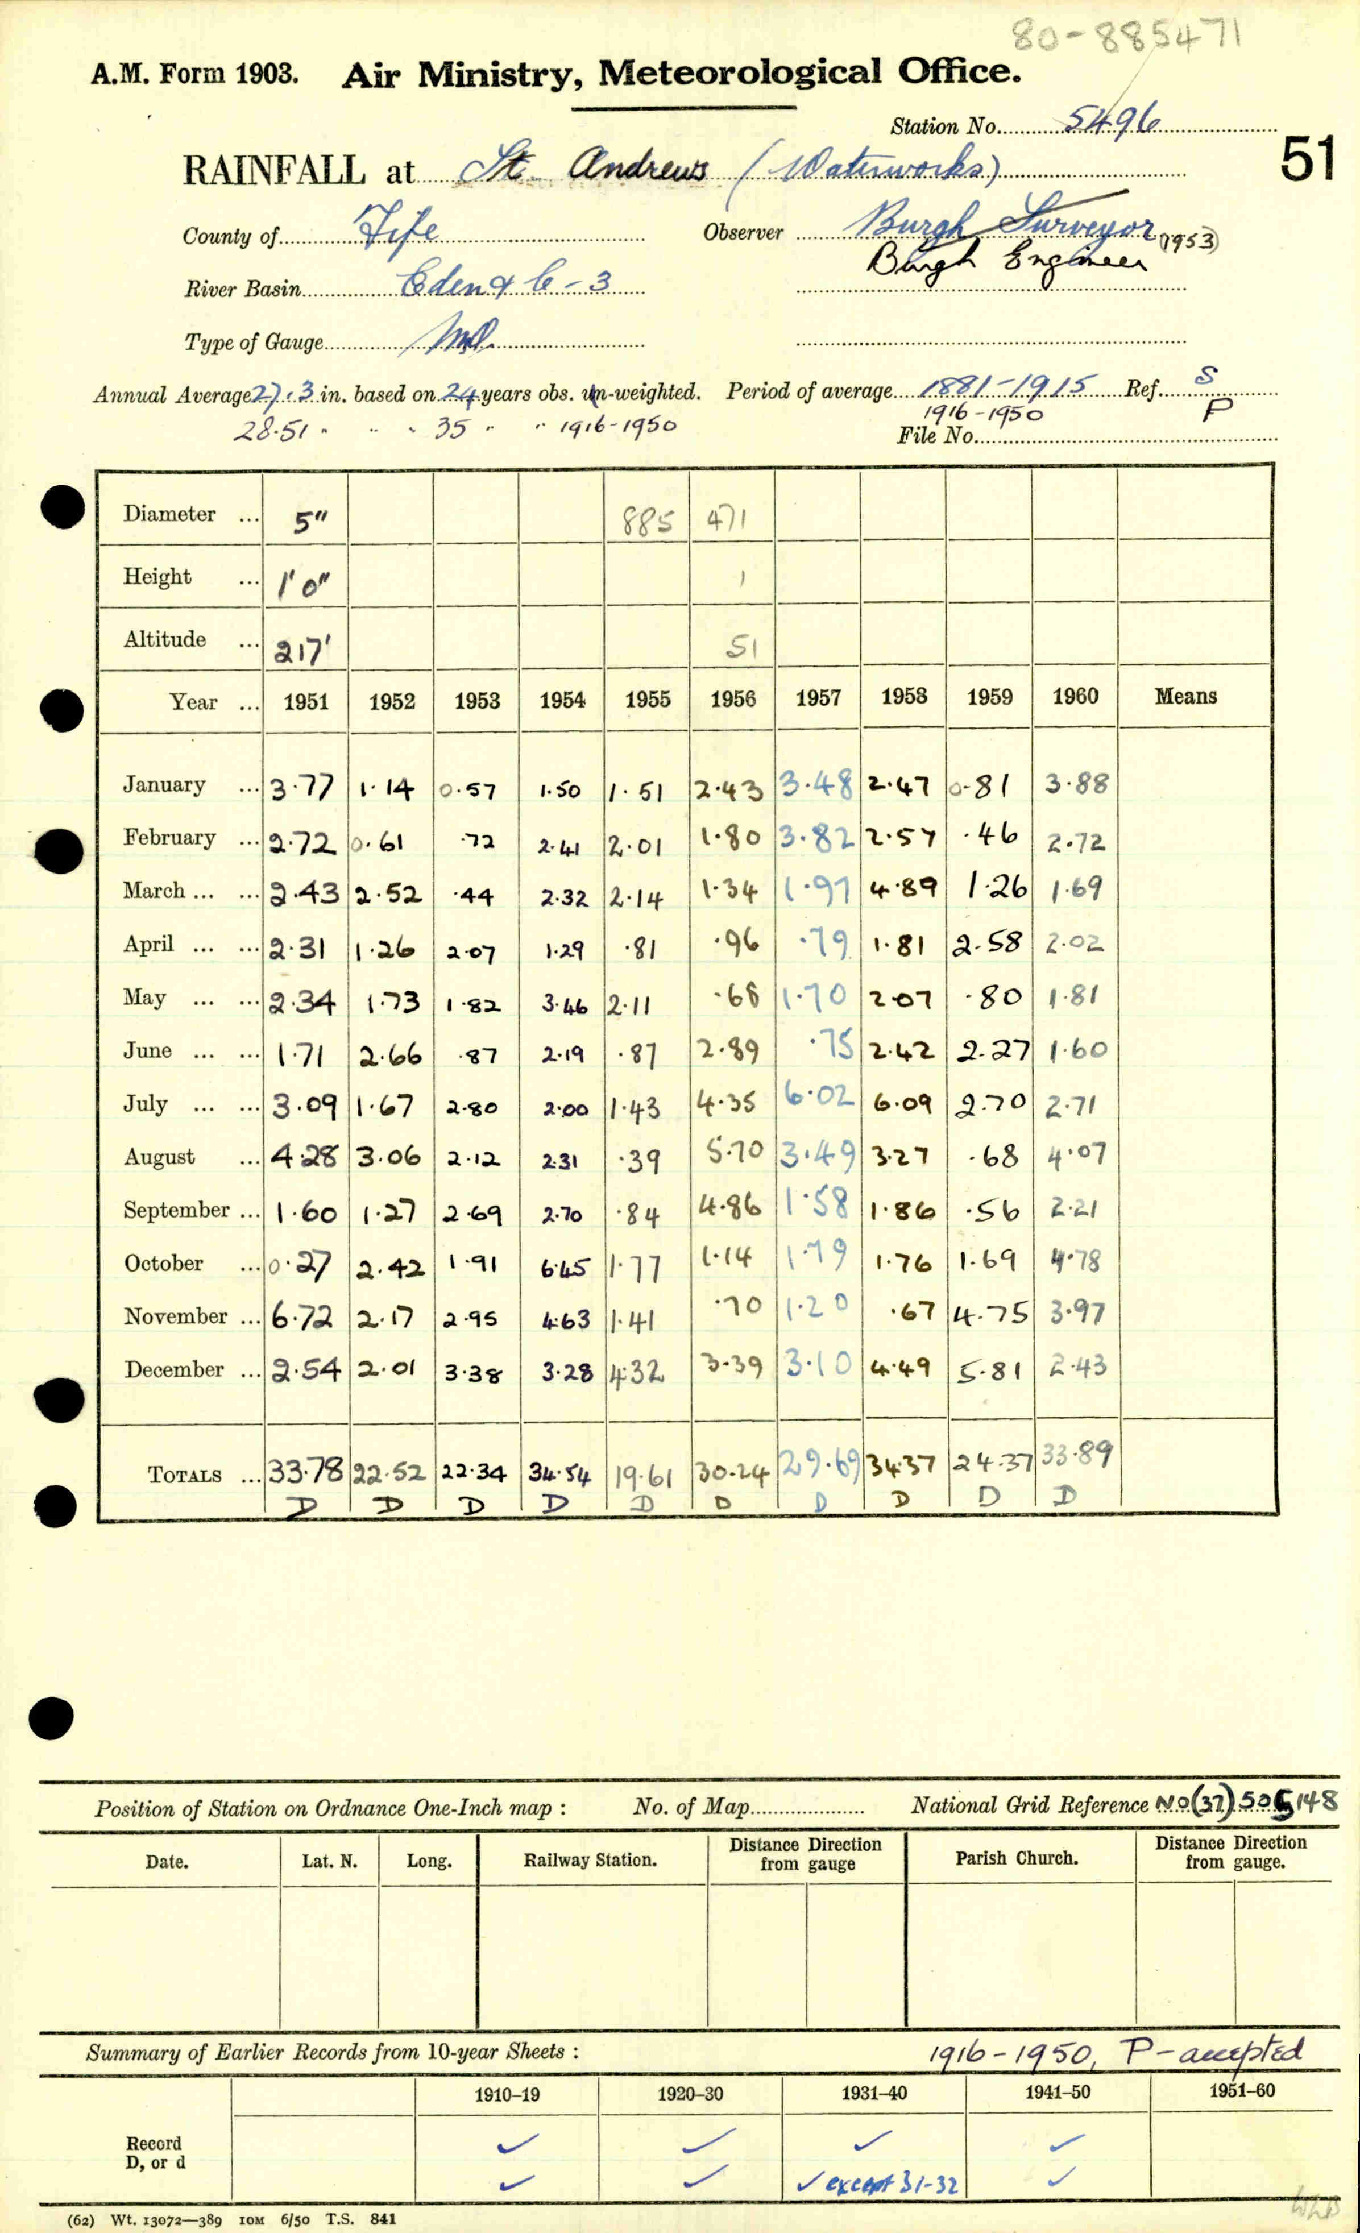 80-885471
A.M. Form 1903. Air Ministry, Meteorological Office.
Station No. 5496
51
RAINFALL at St. Andrews (Waterworks)
County of Fife Observer Burgh Surveyor (1953)
Burgh Engineer
River Basin Eden &c - 3
Type of Gauge M.O.
Annual Average 27.3 in. based on 24 years obs. un-weighted. Period of average 1881-1915 Ref. S
28.51 " " " 35 " " 1916-1950 1916-1950 P
File No.
Diameter ... 5" 885 471
Height ... 1'0" 1
Altitude ... 217' 51
Year ... 1951 1952 1953 1954 1955 1956 1957 1958 1959 1960 Means
January ... 3.77 1.14 0.57 1.50 1.51 2.43 3.48 2.47 0.81 3.88
February ... 2.72 0.61 .72 2.41 2.01 1.80 3.82 2.57 .46 2.72
March ... ... 2.43 2.52 .44 2.32 2.14 1.34 1.97 4.89 1.26 1.69
April ... ... 2.31 1.26 2.07 1.29 .81 .96 .79 1.81 2.58 2.02
May ... ... 2.34 1.73 1.82 3.46 2.11 .68 1.70 2.07 .80 1.81
June ... ... 1.71 2.66 .87 2.19 .87 2.89 .75 2.42 2.27 1.60
July ... ... 3.09 1.67 2.80 2.00 1.43 4.35 6.02 6.09 2.70 2.71
August ... 4.28 3.06 2.12 2.31 .39 5.70 3.49 3.27 .68 4.07
September ... 1.60 1.27 2.69 2.70 .84 4.86 1.58 1.86 .56 2.21
October ... 0.27 2.42 1.91 6.45 1.77 1.14 1.79 1.76 1.69 4.78
November ... 6.72 2.17 2.95 4.63 1.41 .70 1.20 .67 4.75 3.97
December ... 2.54 2.01 3.38 3.28 4.32 3.39 3.10 4.49 5.81 2.43
TOTALS ... 33.78 22.52 22.34 34.54 19.61 30.24 29.69 34.37 24.37 33.89
D D D D D D D D D D
Position of Station on Ordnance One-Inch map : No. of Map National Grid Reference NO(37)505148
Date. Lat. N. Long. Railway Station. Distance Direction from gauge Parish Church. Distance Direction from gauge.
Summary of Earlier Records from 10-year Sheets : 1916-1950, P-accepted
1910-19 1920-30 1931-40 1941-50 1951-60
Record ✓ ✓ ✓ ✓
D, or d ✓ ✓ ✓ except 31-32 ✓
(62) Wt. 13072—389 10M 6/50 T.S. 841